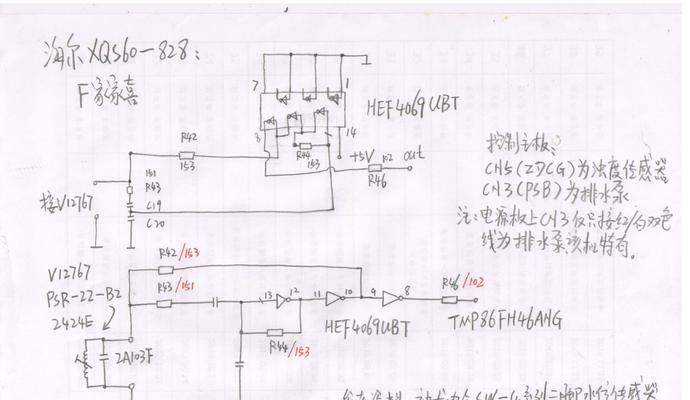 海尔 XQS60-828:
F家家喜
7
1
HEF4069UBT
8
14
R42
153
R44
153
+5V
102
out
R46
151
R43
C19
C20
接V12767
控制主板:
CN5(ZDCG)为浊度传感器
CN3(PSB)为排水泵
注:电源板上CN3仅只接红/白双色
线为排水泵该机特有。
R42/153
V12767
PSR-22-B2
2424E
R43/151
13
12
11
10
9
8
R46/102
HEF4069UBT
TMP86FH46ANG
R44/153
2A103F